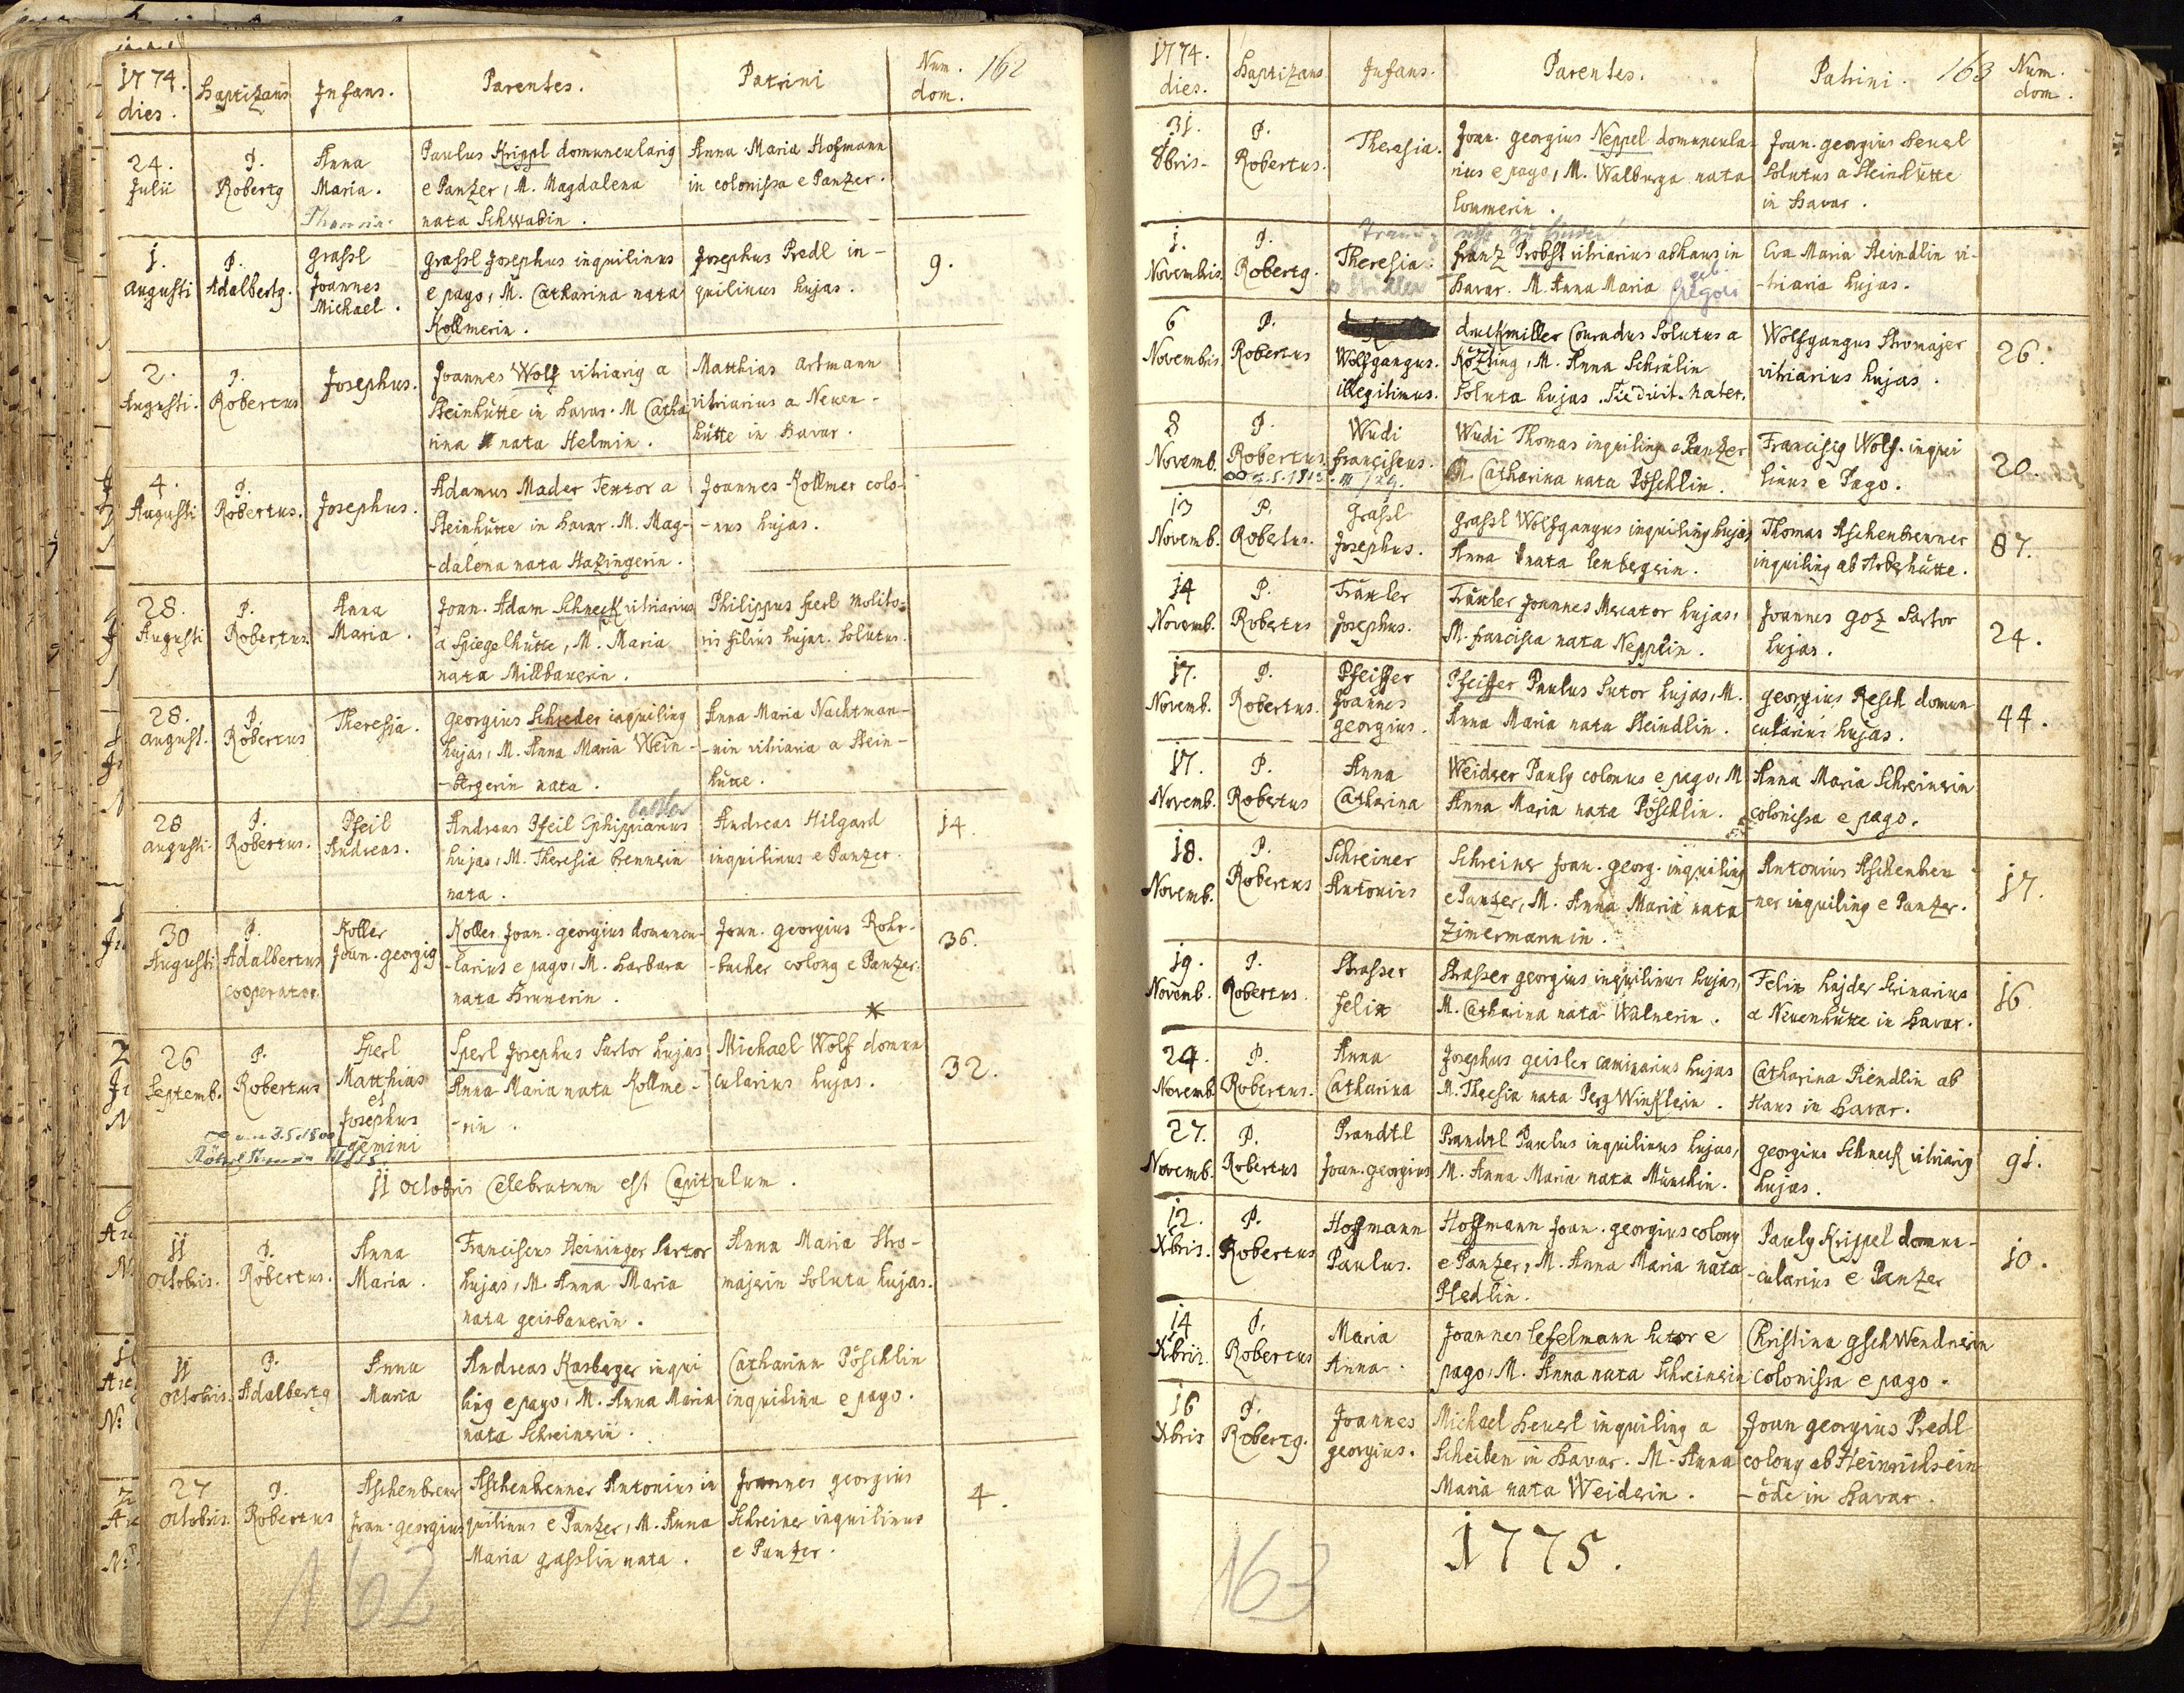 1774.
dies.
Baptizans
Infans.
Parentes.
Patrini
Num.
dom.
162
24.
Julii
P.
Robertg
Anna
Maria.
Paulus Krippl domuncularig
e Panzer, M. Magdalena
nata Schwabin.
Anna Maria Hofmann
in colonissa e Panzer.
1.
Augusti
P.
Adalbertg.
grassl
Joannes
Michael.
grassl Josephus inquilinus
e pago, M. Catharina nata
Kollmerin.
Josephus Predl in-
quilinus hujas.
9.
2.
Augusti.
P.
Robertus
Josephus.
Joannes Wolf vitriarig a
Steinhütte in Bavar. M Catha
rina nata Helmin.
Matthias Artmann
vitriarius a Neuen-
hütte in Bavar.
4.
Augusti
P.
Robertus.
Josephus.
Adamus Mader Textor a
Steinhütte in Bavar. M. Mag-
-dalena nata Hazingerin.
Joannes Kollmer colo-
-nus hujas.
28.
Augusti
P.
Robertus.
Anna
Maria.
Joan. Adam Schneck vitriarius
a Spiegelhütte, M. Maria
nata Millbauerin.
Philippus Sperl molito-
ris filius hujas. Solutus.
28.
august.
P.
Robertus
Theresia.
georgius Schreder inquiling
hujas, M. Anna Maria Wein-
-bergerin nata.
Anna Maria Nachtman-
-nin vitriaria a Stein-
hütte.
28
augusti.
P.
Robertus.
Pfeil
Andreas.
Sattler
Andreas Pfeil Ephippianus
hujas, M. Theresia brennerin
nata.
Andreas Hilgard
inquilinus e Panzer.
14.
30
Augusti
P.
Adalbertus
cooperator.
Koller
Joan. georgig
Koller Joan. georgius domuncu-
-larius e pago, M. Barbara
nata Brunerin.
Joan. georgius Rohr-
-bacher colong e Panzer.
36.
26
Septemb.
P.
Robertus
Sperl
Matthias
et
Josephus
gemini
Sperl Josephus Sartor hujas
Anna Maria nata Kollme-
-rin.
Michael Wolf domun
cularius hujas.
32.
11 octobris Celebratum est Capitulum.
11
octobris.
P.
Robertus.
Anna
Maria.
Franciscus Heininger Sartor
hujas, M. Anna Maria
nata geisbauerin.
Anna Maria Stro-
majerin Soluta hujas.
11
octobris.
P.
Adalbertg
Anna
Maria
Andreas Kasberger inqui
ling e pago, M. Anna Maria
nata Schreinerin.
Catharina Pöschlin
inquilina e pago.
27
octobris.
P.
Robertus
Aschenbrener
Joan. georgius
Aschenbrenner Antonius in
quilinus e Panzer, M. Anna
Maria gasslin nata.
Joannes georgius
Schreiner inquilinus
e Panzer.
4.
162
1774.
dies.
Baptizans
Infans.
Parentes.
Patrini.
163
Num.
dom.
31.
8bris-
P.
Robertus.
Theresia.
Joan. georgius Neppel domuncula-
rius e pago, M. Walburga nata
Commerin.
Joan. georgius
Solutus a Steinhütte
in Bavar.
1.
Novembris.
P.
Robertg.
Theresia.
Franz Probst vitriarius abhaus in
Bavar. M. Anna Maria
geb.
Eva Maria Steindlin vi-
-triaria hujas.
6
Novembris.
P.
Robertus
Wolfgangus.
illegitimus.
druckmiller Conradus Solutus a
Közting, M. Anna Schrälin
Soluta hujas. Sic dixit mater.
Wolfgangus Stromajer
vitriarius hujas.
26.
8
Novemb.
P.
Robertus.
Wudi
franciscus.
Wudi Thomas inquiling e Panzer
M. Catharina nata Pöschlin.
Franciscg Wolf. inqui
linus e Pago.
20.
13
Novemb.
P.
Robertus.
Grassl
Josephus.
grassl Wolfgangus inquiling hujas
Anna nata lenbergerin.
Thomas Aschenbrenner
inquiling ab Arberhütte.
87.
14
Novemb.
P.
Robertus
Träxler
Josephus.
Träxler Joannes Mercator hujas,
M. francisca nata Nepplin.
Joannes goz Sartor
hujas.
24.
17.
Novemb.
P.
Robertus.
Pfeiffer
Joannes
georgius.
Pfeiffer Paulus Sutor hujas, M.
Anna Maria nata Steindlin.
georgius Resch domun
cularius hujas.
44.
17.
Novemb.
P.
Robertus
Anna
Catharina
Weidrer Paulg colonus e pago, M
Anna Maria nata Pöschlin.
Anna Maria Schreinerin
colonissa e pago.
18.
Novemb.
P.
Robertus
Schreiner
Antonius
Schreiner Joan. georg. inquiling
e Panzer, M. Anna Maria nata
Zimermannin.
Antonius Aschenbren
-ner inquiling e Panzer.
17.
19.
Novemb.
P.
Robertus.
Strasser
felix
Strasser georgius inquilinus hujas,
M. Catharina nata Walnerin.
Felix hajder Scrinarius
a Neuenhütte in Bavar.
16
24.
Novemb.
P.
Robertus.
Anna
Catharina
Josephus geisler caminarius hujas
M. Theresia nata PergWinklerin.
Catharina Piendlin ab
Haus in Bavar.
27.
Novemb.
P.
Robertus
Prandtl
Joan. georgius
Prandtl Paulus inquilinus hujas,
M. Anna Maria nata Münchin.
georgius Schneck vitriarig
hujas.
91.
12.
Xbris.
P.
Robertus
Hoffmann
Paulus.
Hoffmann Joan. georgius colong
e Panzer, M. Anna Maria nata
Pledlin.
Paulg Krippel domun-
-cularius e Panzer
10.
14
Xbris.
P.
Robertus
Maria
Anna.
Joannes lefelmann sutor e
pago, M. Anna nata Schreinerin
Christina gschWendnerin
colonissa e pago.
16
Xbris
P.
Robertg.
Joannes
georgius.
Michael Heuerl inquiling a
Scheiben in Bavar. M. Anna
Maria nata Weiderin.
Joan georgius Predl
colong ab Heinrichsein-
-öde in Bavar.
1775.
163